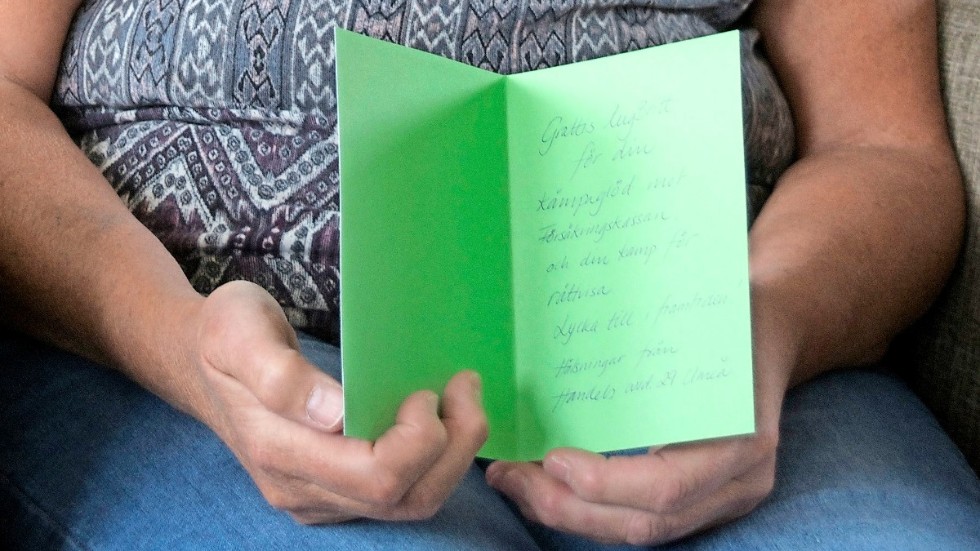 Grattis
för din
kämpaglöd mot
Försäkringskassan
och din kamp för
rättvisa
Lycka till i framtiden!
Hälsningar från
Handels avd. 29